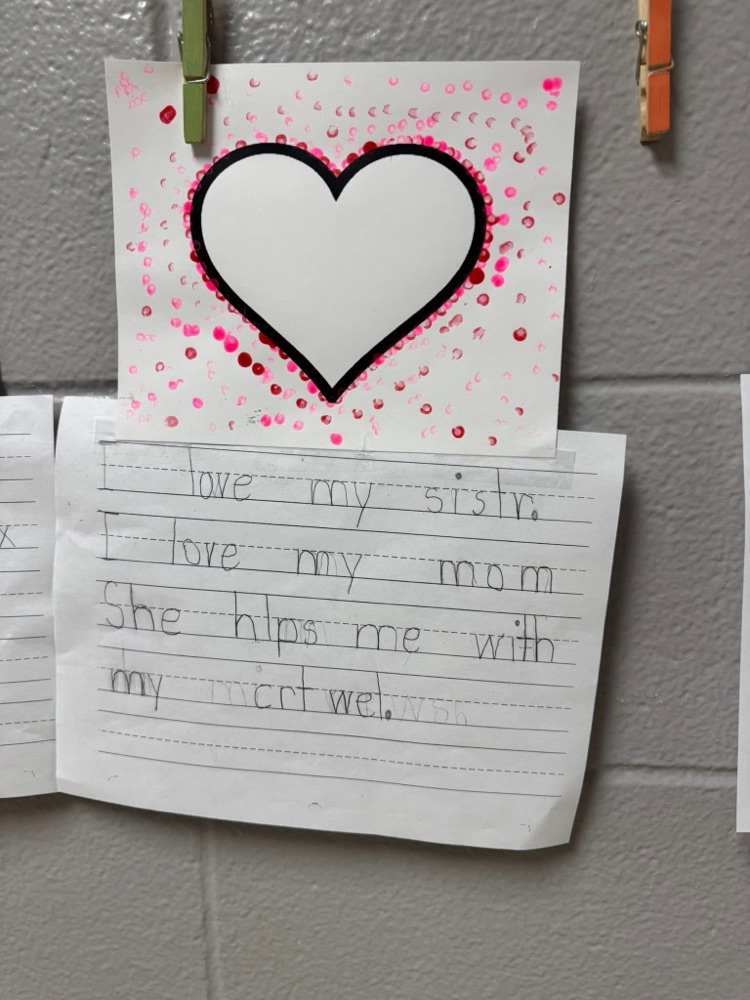 I love my sistr.
I love my mom
She hlps me with
my crt wel.
x